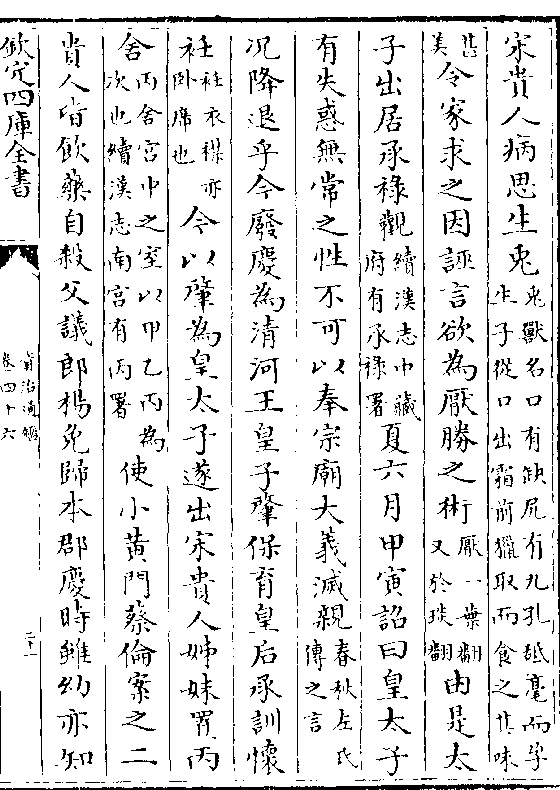 宋貴人病思生兎兎獸名口有缺尻有九孔舐毫而孕生子從口出霜前獵取而食之其味
甚美令家求之因誣言欲為厭勝之術厭一葉翻又於琰翻由是太
子出居承祿觀續漢志中藏府有承祿署夏六月甲寅詔曰皇太子
有失惑無常之性不可以奉宗廟大義滅親春秋左氏傳之言
况降退乎今廢慶為清河王皇子肇保育皇后承訓懷
袵袵衣襟亦卧席也今以肇為皇太子遂出宋貴人姊妹置丙
舍丙舍宫中之室以甲乙丙為次也續漢志南宫有丙署使小黄門蔡倫案之二
貴人皆飲藥自殺父議郎楊免歸本郡慶時雖幼亦知
欽定四庫全書
資治通鑑
卷四十六
二十一